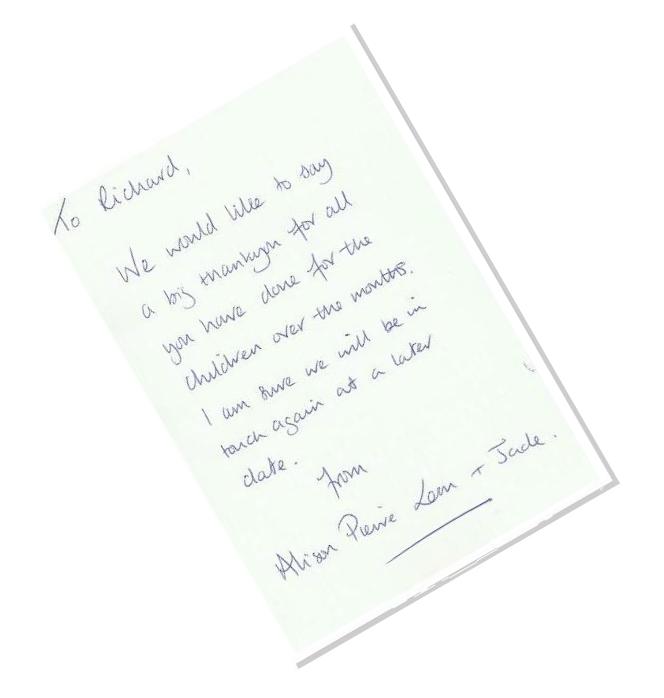 To Richard,
We would like to say
a big thankyou for all
you have done for the
children over the months.
I am sure we will be in
touch again at a later
date.
from
Alison Pierre + Jade.